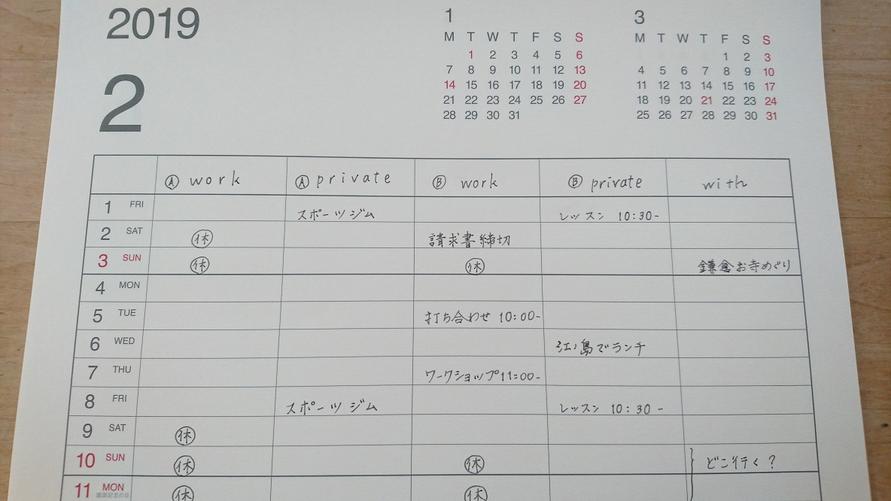 2019
2
1
M T W T F S S
1 2 3 4 5 6
7 8 9 10 11 12 13
14 15 16 17 18 19 20
21 22 23 24 25 26 27
28 29 30 31
3
M T W T F S S
1 2 3
4 5 6 7 8 9 10
11 12 13 14 15 16 17
18 19 20 21 22 23 24
25 26 27 28 29 30 31
Ⓐ work Ⓐ private Ⓑ work Ⓑ private with
1 FRI スポーツジム レッスン 10:30-
2 SAT ㊡ 請求書締切
3 SUN ㊡ ㊡ 鎌倉お寺めぐり
4 MON
5 TUE 打ち合わせ 10:00-
6 WED 江ノ島でランチ
7 THU ワークショップ11:00-
8 FRI スポーツジム レッスン 10:30-
9 SAT ㊡
10 SUN ㊡ ㊡ どこ行く?
11 MON ㊡ ㊡
建国記念の日